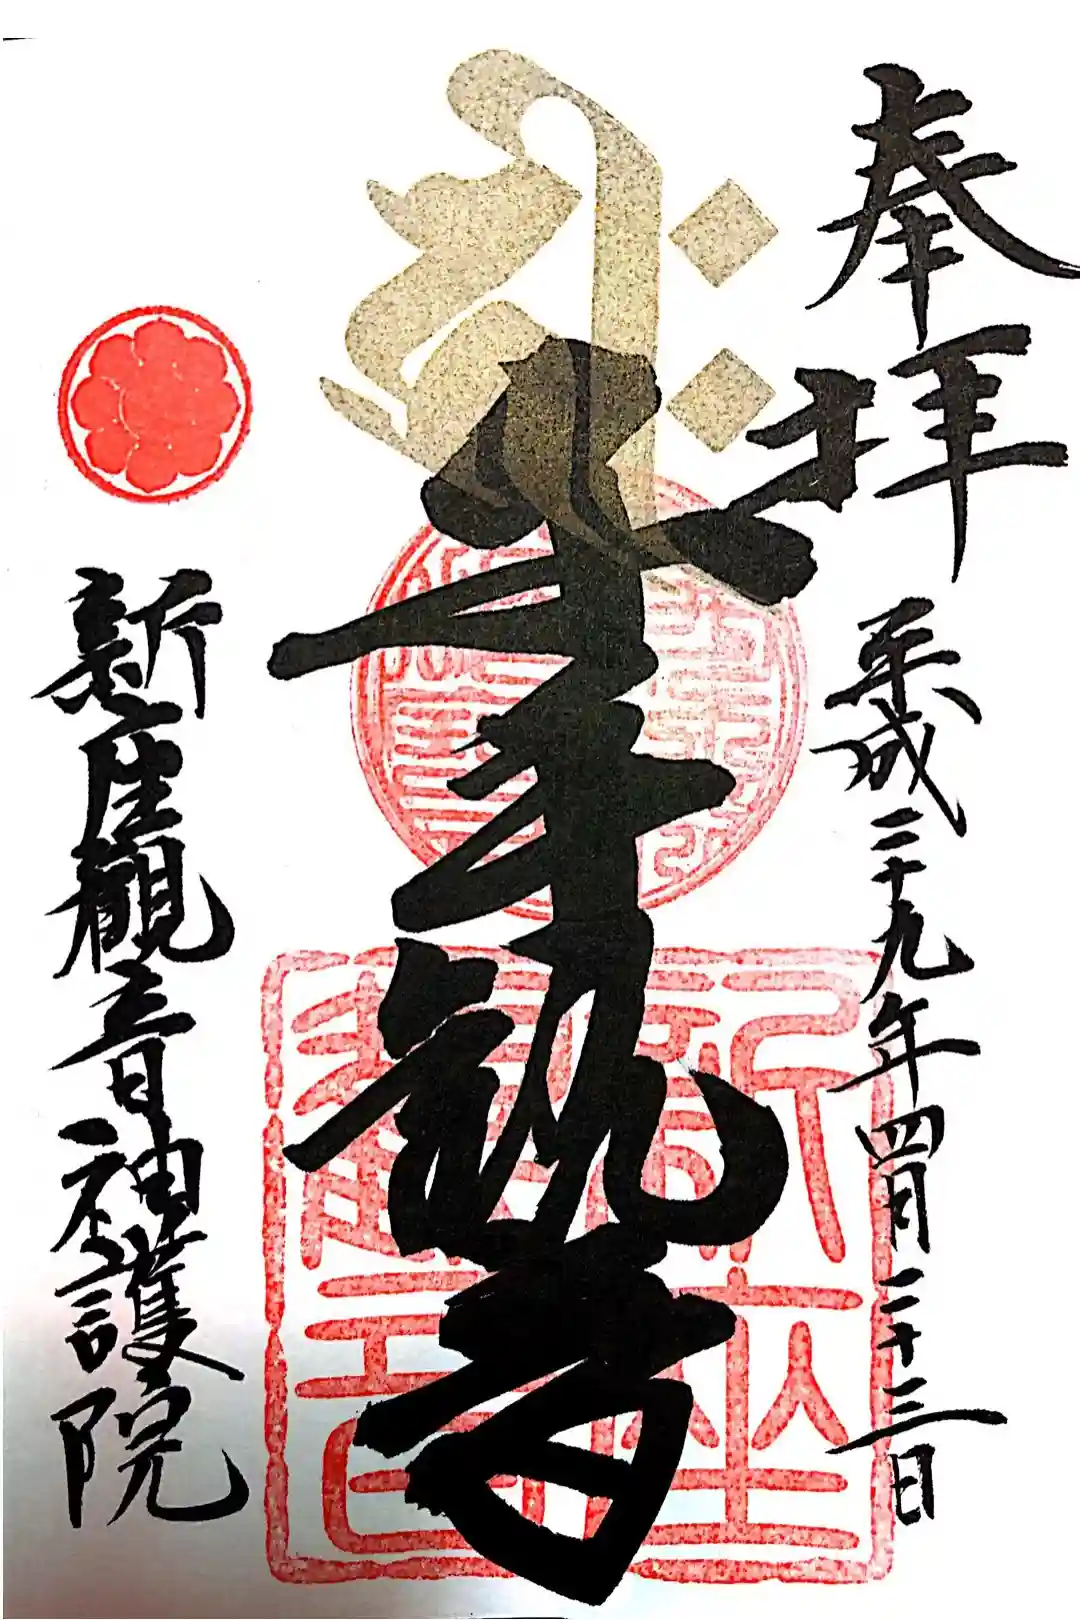 奉拝
平成二十九年四月二十三日
千手観音
新座観音神護院